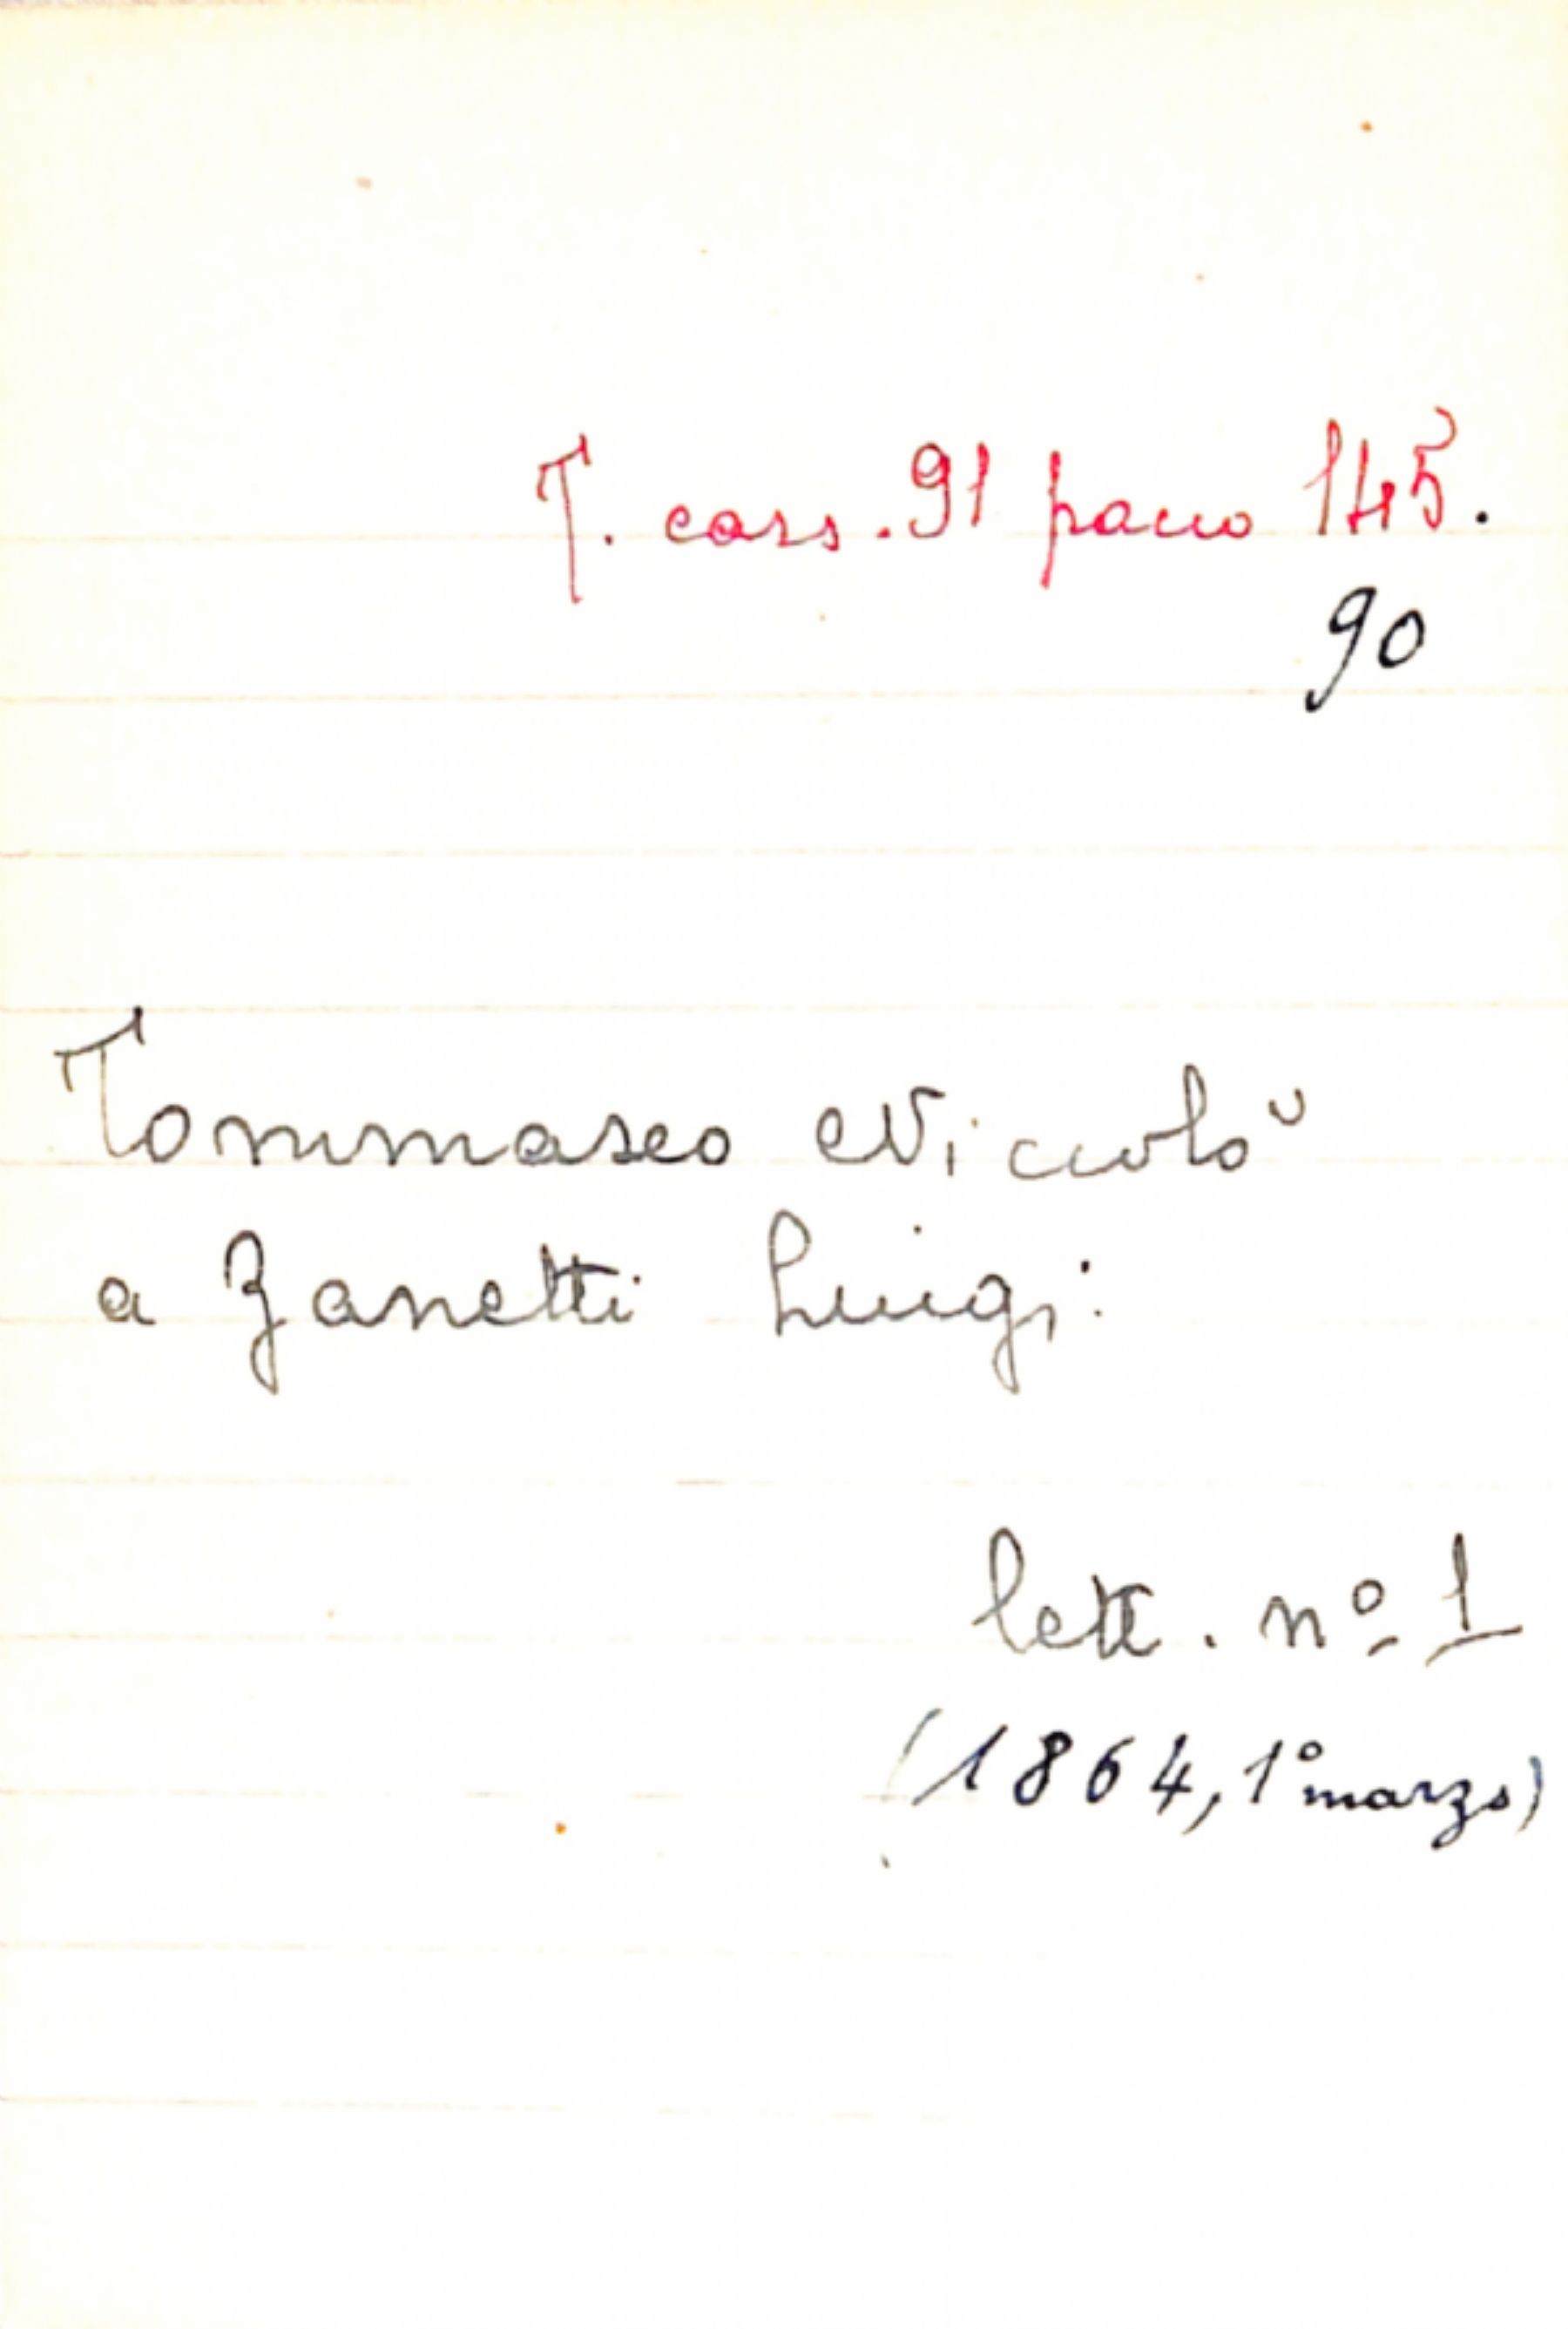 T. cass. 91 pacco 145.
90
Tommaseo Niccolò
a Zanetti Luigi.
lett. nº 1
(1864, 1º marzo)